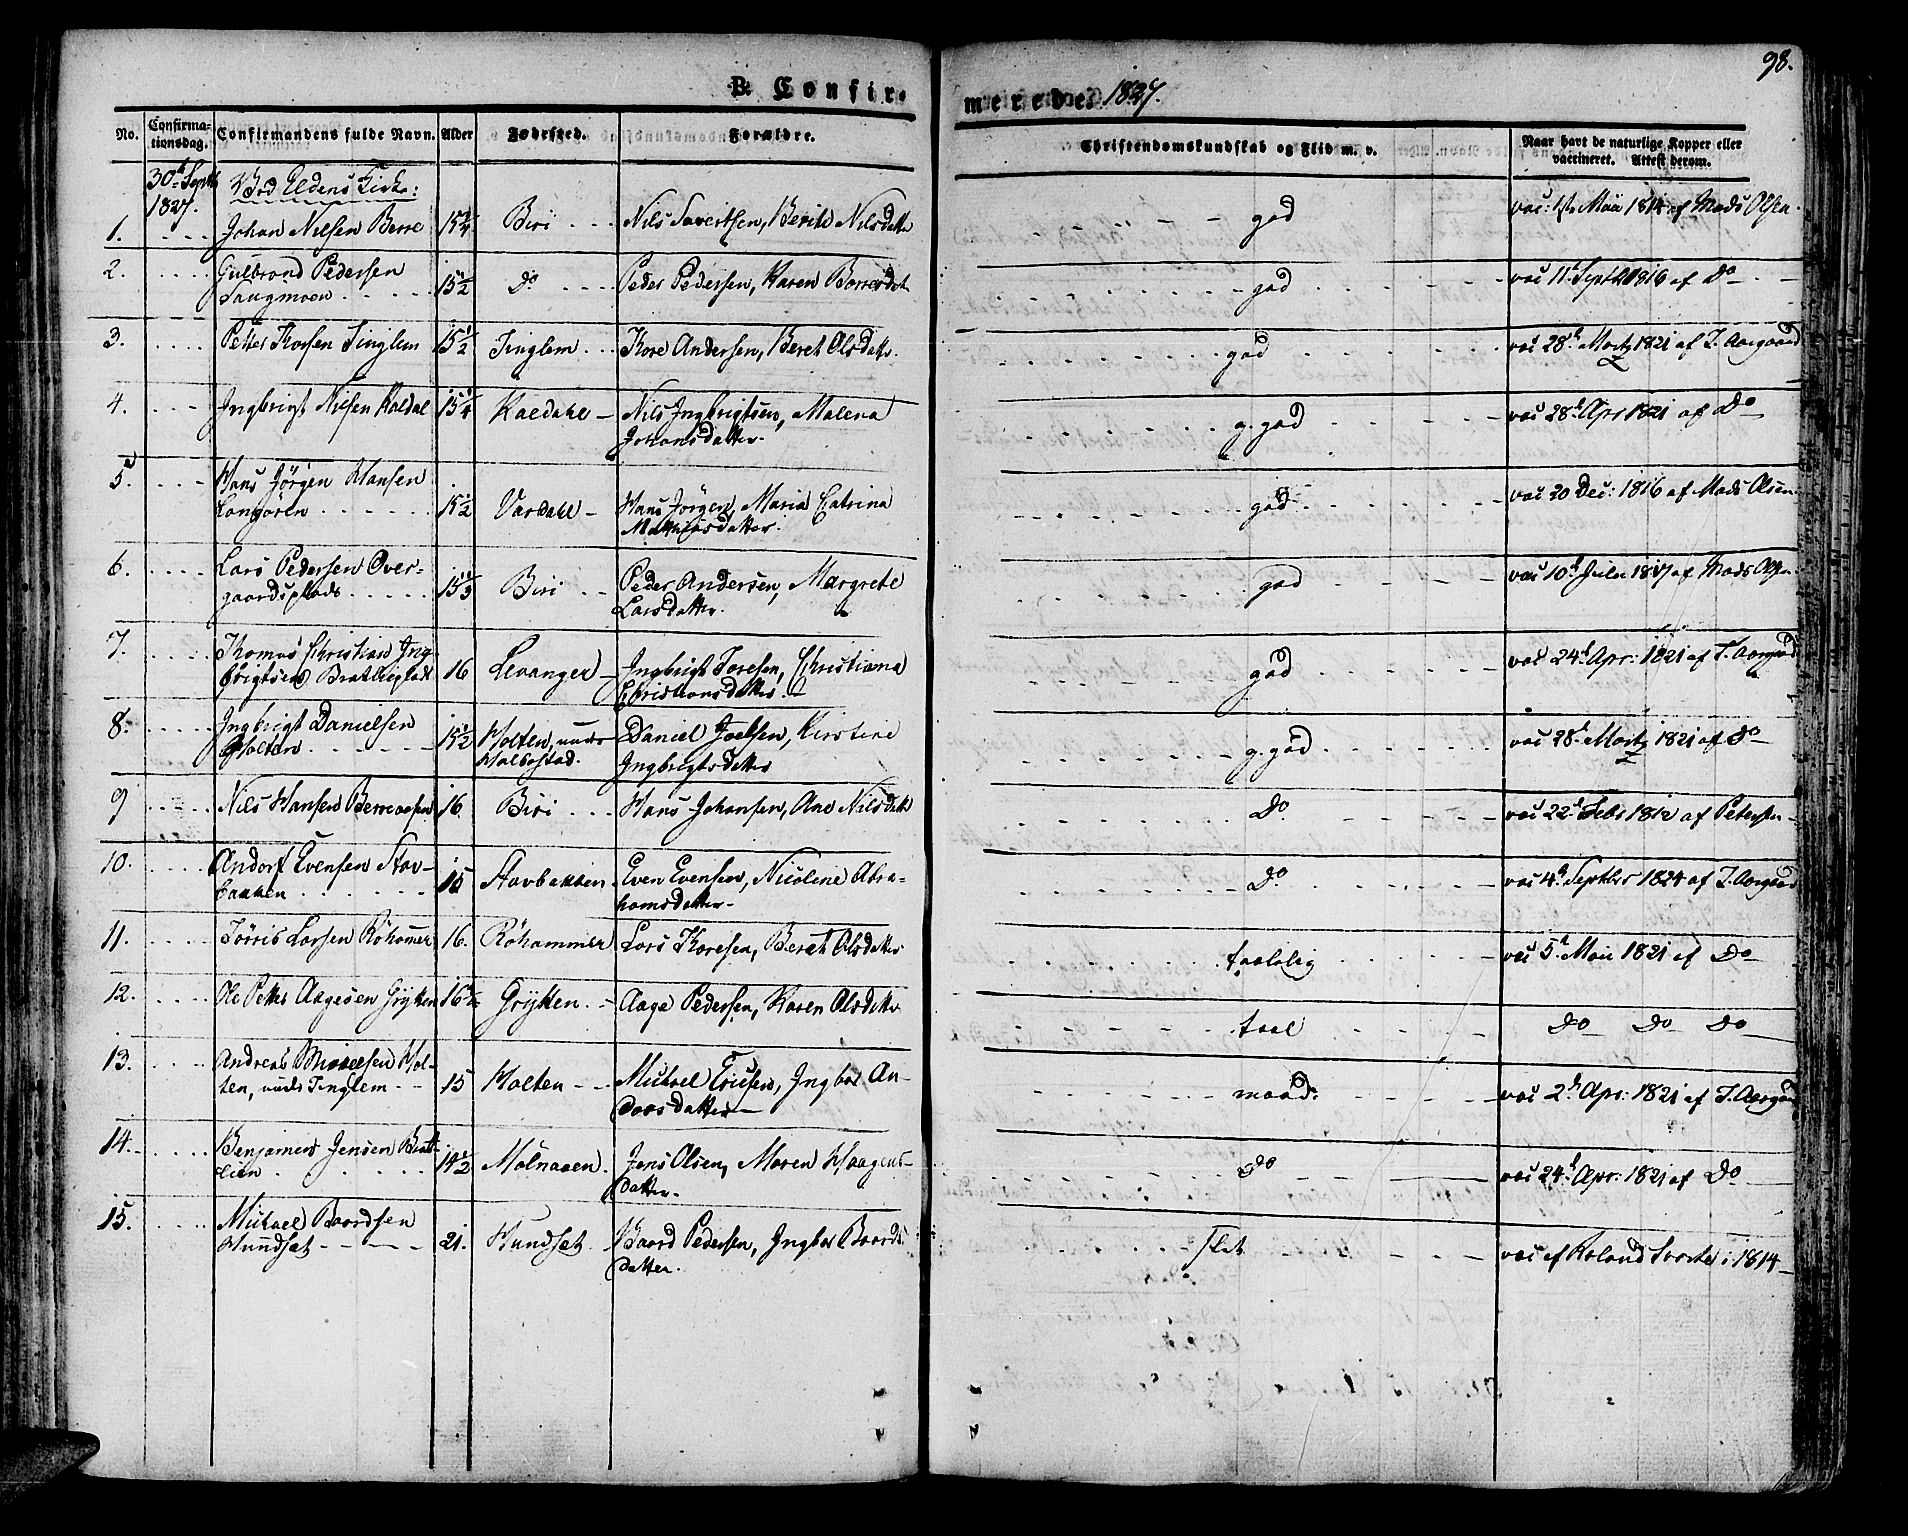 98.
B. Confir-
merede 1827.
No. Confirma-tionsdag. Confirmandens fulde Navn. Alder Fødested. Forældre. Christendomskundskab og Flid m. v. Naar havt de naturlige Kopper eller vaccineret. Attest derom.
30te Septb 1827. Ved Eldens Kirke:
1. Johan Nilsen Berre 15 3/4 Biri Nils Sivertsen, Berite Nilsdatter god vac: 1ste Mai 1814 af Mads Olsen
2. Gulbrand Pedersen
Saugmoen 15 1/2 Do Peder Pedersen, Karen god vac 11 Septbr 1816 af Do
3. Petter Thorsen Tinglem 15 1/2 Tinglem Thore Andersen, Beret Olsdatter god vac 28de Martz 1821 af T. Aargaard
4. Ingbrigt Nilsen Kaldal 15 1/4 Kaldahl Nils Ingbrigtsen, Malena
Johansdatter g. god vac 28de Apr 1821 af Do
5. Hans Jörgen Hansen
Langören 15 1/2 Værdahl Hans Jörgen, Maria Catrina
Mathiasdatter god vac 20 Dec: 1816 af Mads Olsen
6. Lars Pedersen Over-
gaardsplads 15 1/3 Biri Peder Andersen, Margrete
Larsdatter god vac 10de Julii 1817 af Mads Olsen
7. Thomas Christian Ing-
brigtsen 16 Levanger Ingbrigt Toresen, Christiana
Christiansdatter god vac 24de Apr: 1821 af T. Aargaard
8. Ingbrigt Danielsen
Holten 15 1/2 Holten, under
Halbostad. Daniel Joelsen, Kirstine
Ingbrigtsdatter g. god vac 28de Martz 1821 af Do
9 Nils Hansen 16 Biri Hans Johansen, Ane Nilsdatter Do vac 22de Febr 1812 af Petersen
10. Andorf Evensen Stav-
bakken 15 Stavbakken Even Evensen, Nicoline Abra-
hamsdatter Do vac 4de Septbr 1824 af T. Aargaard
11. Törris Larsen Röhamer 16. Röhammer Lars Thoresen, Beret Olsdatter taalelig vac 5te Mai 1821 af Do
12. Ole Petter Aagesen Grÿtten 16 1/2 Grÿtten Aage Pedersen, Karen Olsdatter taal Do Do Do
13. Andreas Michelsen Hol-
ten, under Tinglem 15 Holten Michael Ericsen, Ingbor An-
dorsdatter maad: vac 2de Apr: 1821 af T. Aargaard
14. Benjamin Jensen Brat-
lien 14 1/2 Molnaaen Jens Olsen, Maren Haagens-
datter Do vac 24de Apr: 1821 af Do
15. Michael Baardsen
Hundset 21. Hundset Baard Pedersen, Ingbor Baards
datter. slet vac af Roland i 1814